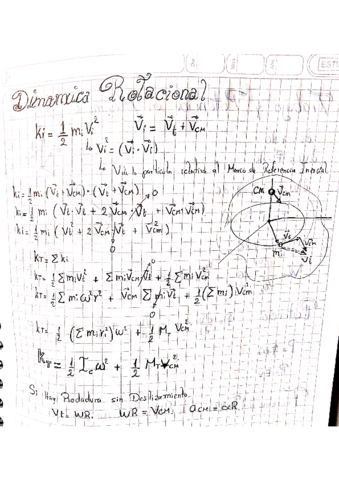 Dinamica Rotacional
Ki = 1/2 mi Vi²    V⃗i = V⃗t + V⃗cm
↳ Vi² = (V⃗i · V⃗i)
↳ Vi la particula relativa al Marco de Referencia Inercial
Ki = 1/2 mi (V⃗t + V⃗cm) · (V⃗t + V⃗cm)
Ki = 1/2 mi (V⃗t · V⃗t + 2 V⃗cm · V⃗t + V⃗cm · V⃗cm) 0
Ki = 1/2 mi (Vt² + 2 V⃗cm V⃗t + Vcm²)
0
CM V⃗cm
V⃗t
Vcm
mi
Vi
KT = Σ Ki
KT = 1/2 Σ mi Vt² + Σ mi V⃗cm V⃗t + 1/2 Σ mi Vcm²
KT = 1/2 Σ mi ω² r² + V⃗cm Σ mi V⃗t + 1/2 (Σ mi) Vcm²
0
KT = 1/2 (Σ mi r²) ω² + 1/2 MT Vcm²
KT = 1/2 Ic ω² + 1/2 MT Vcm²
Si Hay Rodadura sin Deslizamiento.
Vt = WR. WR = Vcm, acm = αR